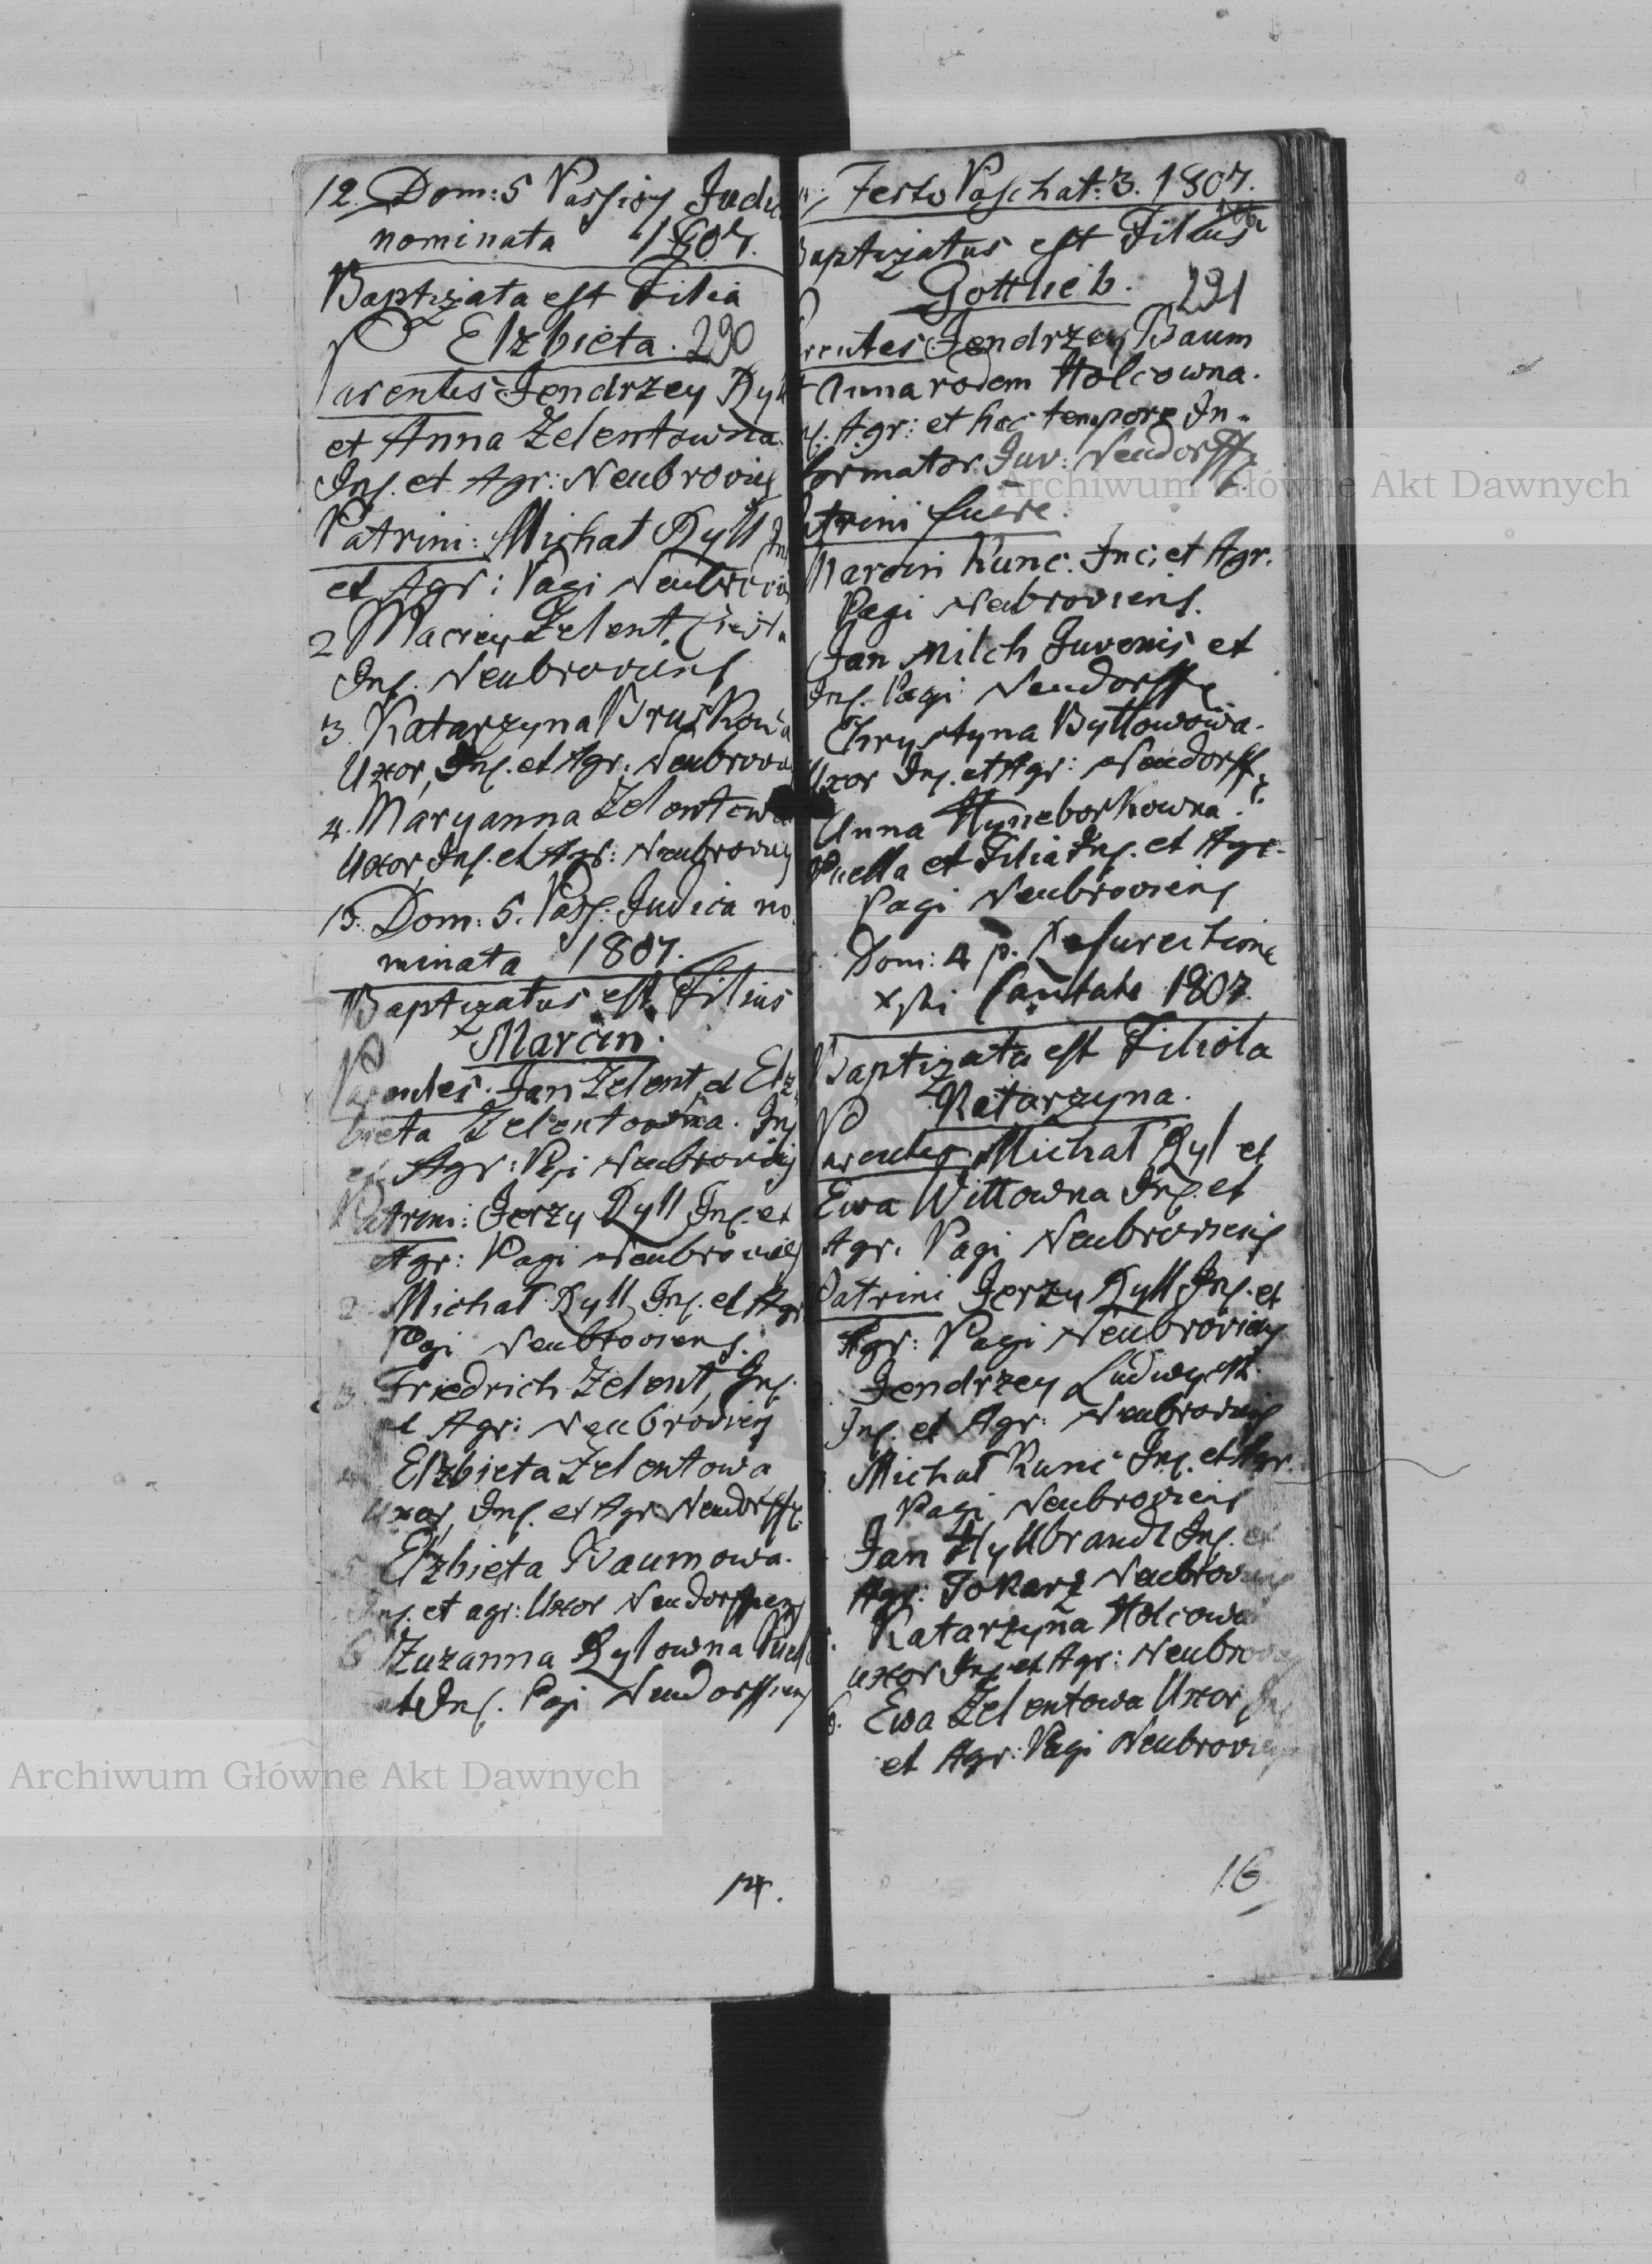 12. Dom: 5 Passioy Judi
nominata 1807.
Baptizata est Filia
Elzbieta. 290
Parentes Jendrzey Ryll
et Anna Zelentowna.
Inc. et Agr: Neubroviey
Patrini: Michał Ryll In
et Agr: Pagi Neubrovi
2 Maciey Zelent,
Inc. Neubroviens
3. Katarzyna Bruskowa
Uxor, Inc. et Agr. Neubrov
4. Maryanna Zelentowa
Uxor, Inc. et Agr: Neubroviey
13. Dom: 5. Pass. Judica no
minata 1807.
Baptizatus est Filius
Marcin.
Parentes. Jan Zelent et Elz
bieta Zelentowna. Inc
et Agr: Pagi Neubroviey
Patrini: Jerzy Ryll Inc. et
Agr: Pagi Neubroviey
2. Michał Ryll, Inc. et Agr
Pagi Neubroviens.
3. Friedrich Zelent, Inc.
et Agr: Neubroviey
4 Elzbieta Zelentowa
Uxor, Inc. et Agr Neudorff
5 Elzbieta Baumowa.
Inc. et agr: Uxor Neudorffiens
6 Zuzanna Rylowna Puell
et Inc. Pagi Neudorffiens
14.
Festo Paschat: 3. 1807.
Baptizatus est Filius
Gottlieb. 291
Parentes Jendrzey Baum
et Anna rodem Holcowna.
Inc. Agr: et hoc tempore In-
formator Juv: Neudorff
Patrini fuere.
Marcin Kunc. Inc: et Agr.
Pagi Neubroviens.
Jan Milch Juvenis et
Inc. Pagi Neudorff
Chrystyna Byttowowa.
Uxor Inc. et Agr: Neudorff
Anna Hyneborkowna.
Puella et Filia Inc. et Agr.
Pagi Neubroviens
Dom: 4 p. Resurectione
Xsti Cantate 1807.
Baptizata est Filiola
Katarzyna.
Parentes Michał Ryl et
Ewa Wittowna Inc. et
Agr. Pagi Neubroviens
Patrini Jerzy Ryll Inc. et
Agr: Pagi Neubroviey
Jendrzey Ludwych
Inc. et Agr: Neubroviens
Michał Kunc Inc. et Agr.
Pagi Neubroviens
Jan Hyllbrandt Inc. et
Agr: Tokarz Neubrov
Katarzyna Holcowa
uxor Inc et Agr: Neubrov
6. Ewa Zelentowa Uxor In
et Agr: Pagi Neubroviey
16
Archiwum Główne Akt Dawnych
Archiwum Główne Akt Dawnych